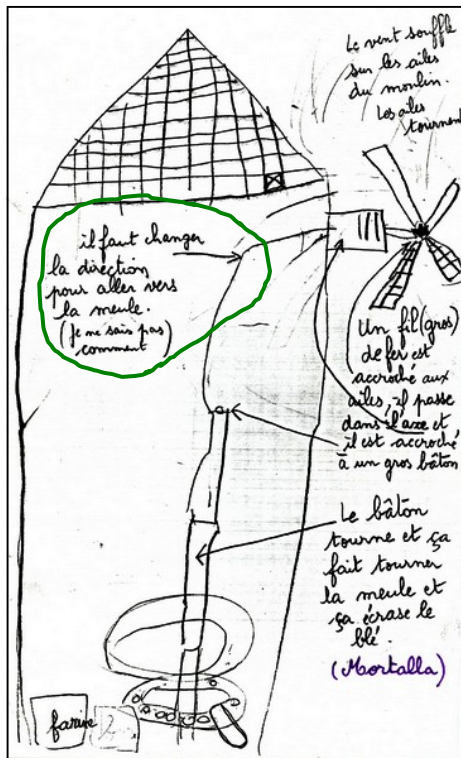 Le vent souffle
sur les ailes
du moulin.
Les ailes
tournent
il faut changer
la direction
pour aller vers
la meule.
(Je ne sais pas
comment)
Un fil (gros)
de fer est
accroché aux
ailes, il passe
dans l'axe et
il est accroché
à un gros bâton
Le bâton
tourne et ça
fait tourner
la meule et
ça écrase le
blé.
(Mortalla)
farine 2